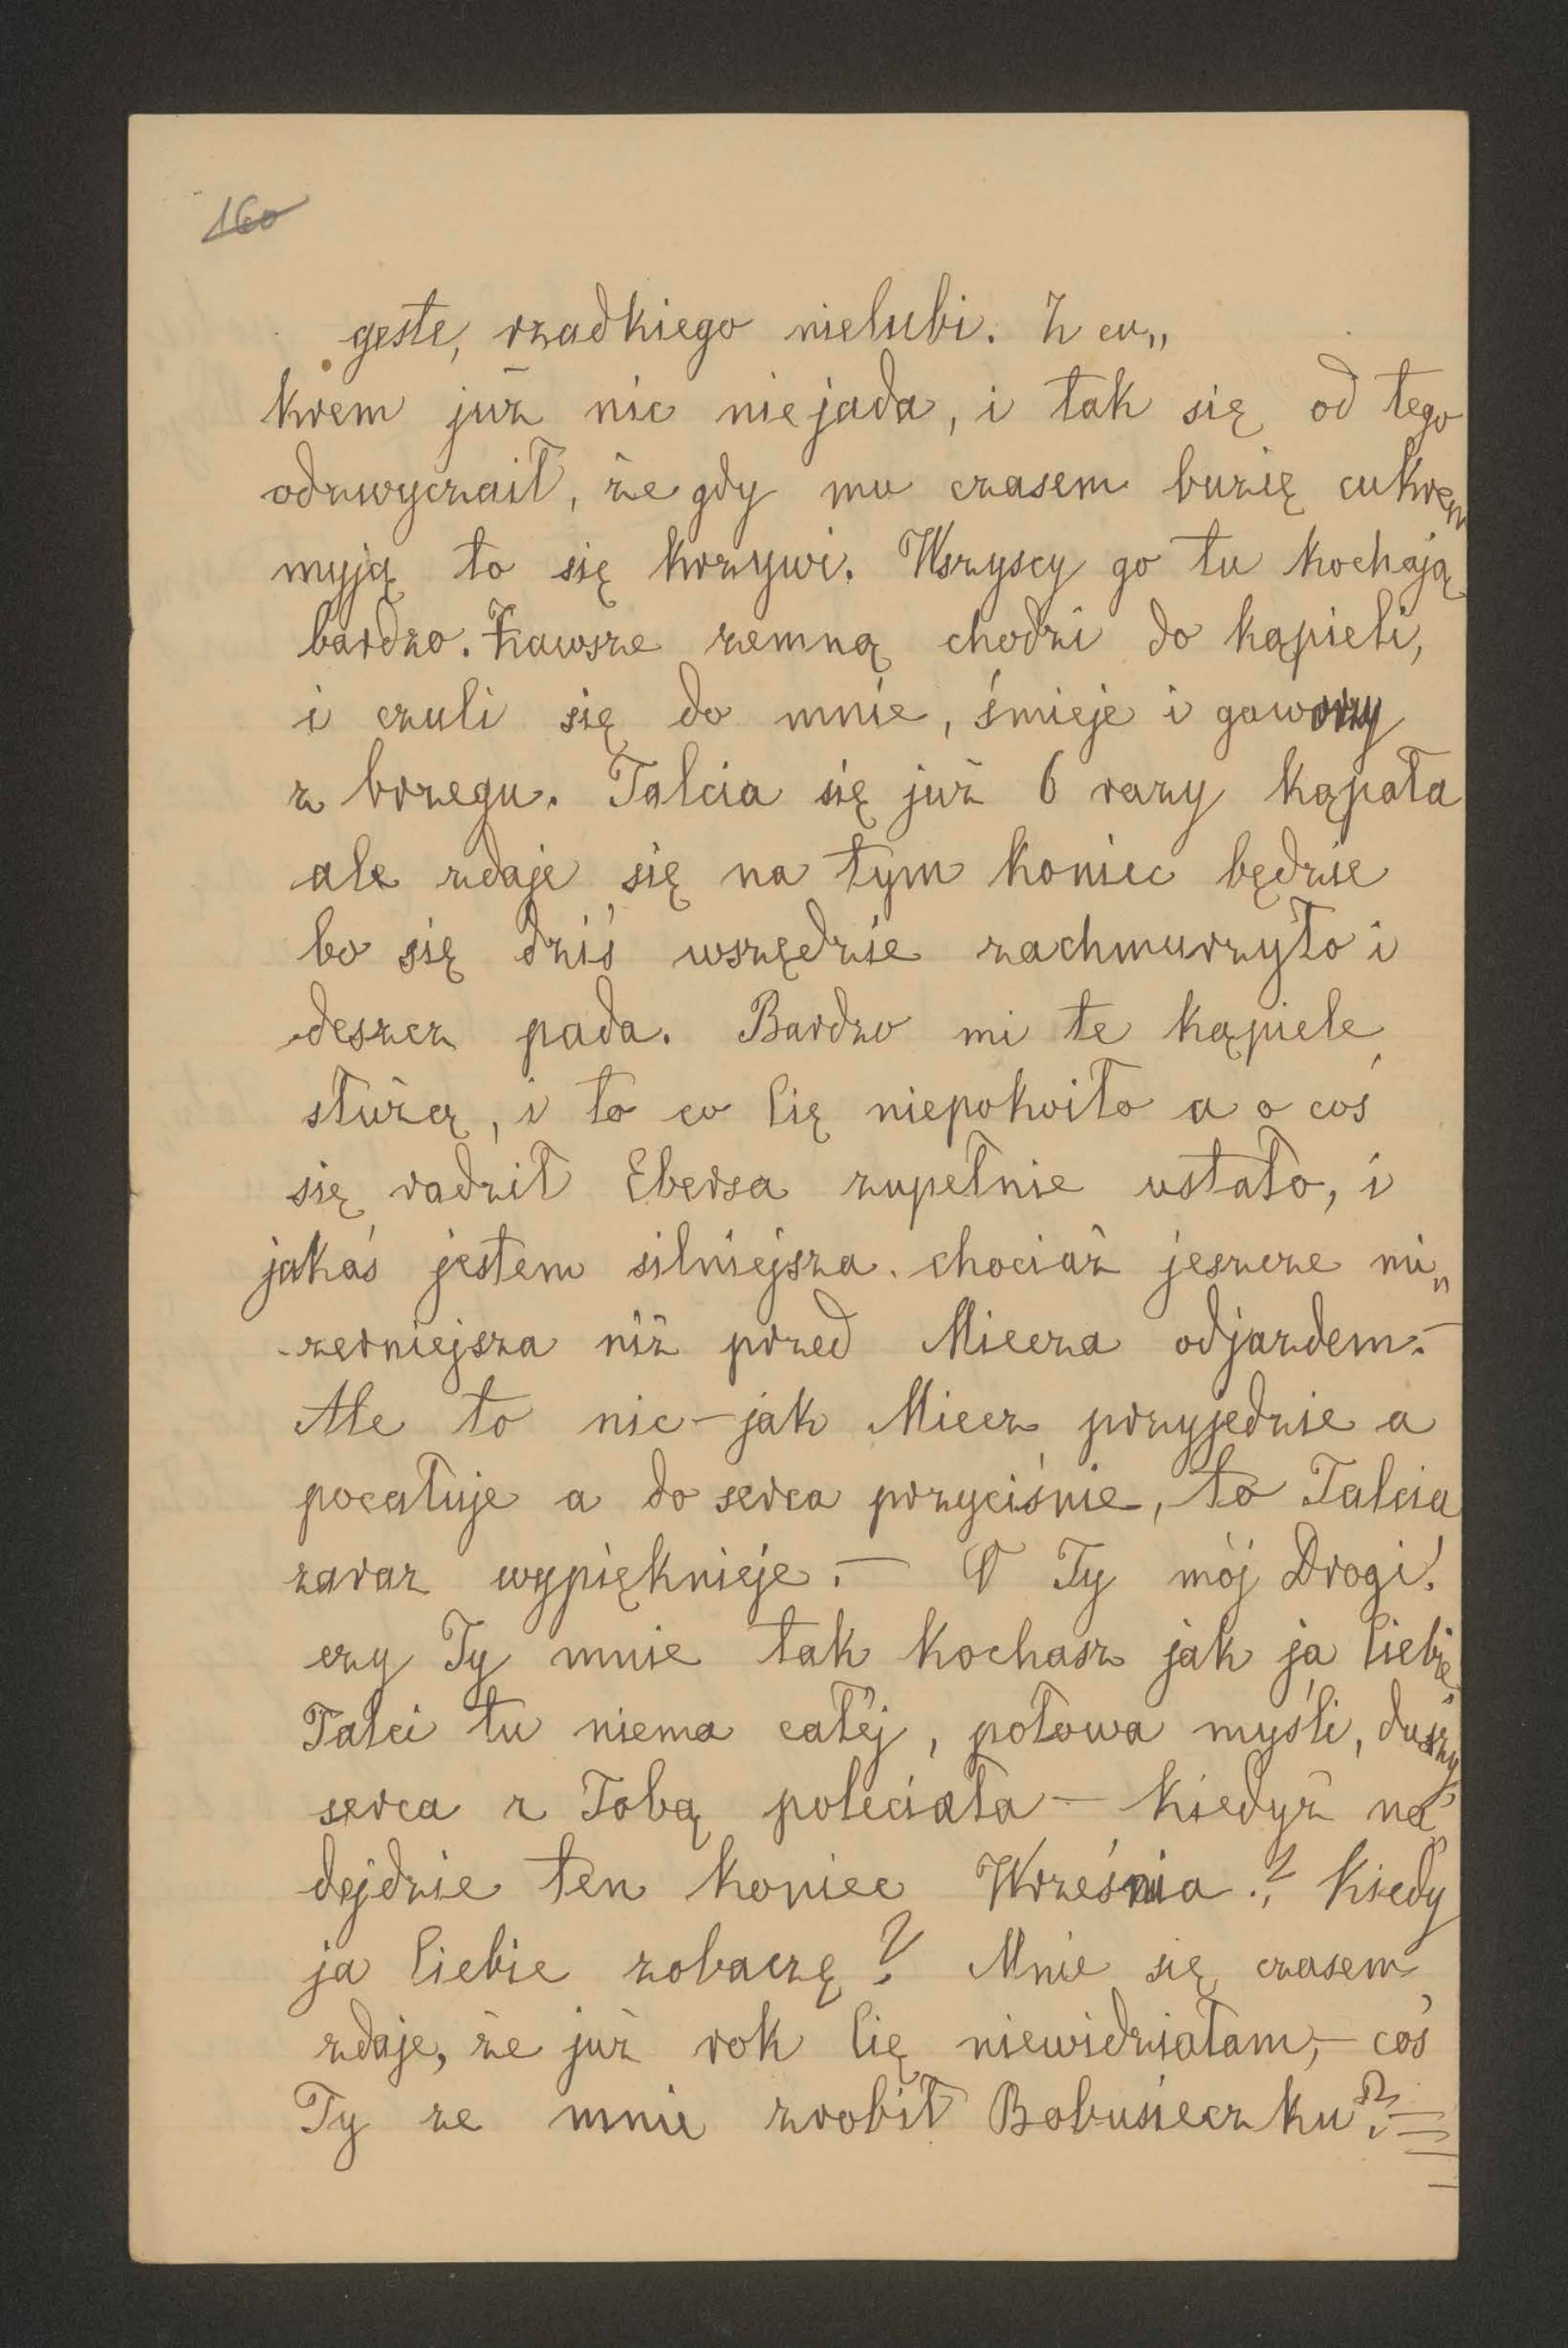 160
gęste, rzadkiego nielubi. Z cu„
krem już nic niejada, i tak się od tego
odzwyczaił, że gdy mu czasem buzię cukrem
myją to się krzywi. Wszyscy go tu kochają
bardzo. Zawsze zemną chodzi do kąpieli,
i czuli się do mnie, śmieje i gaworzy
z brzegu. Talcia się już 6 razy kąpała
ale zdaje się na tym koniec będzie
bo się dziś wszędzie zachmurzyło i
deszcz pada. Bardzo mi te kąpiele
służą, i to co Cię niepokoiło a o coś
się radził Ebersa zupełnie ustało, i
jakaś jestem silniejsza. chociaż jeszcze mi„
zerniejsza niż przed Miecza odjazdem.—
Ale to nic — jak Miecz przyjedzie a
pocałuje a do serca przyciśnie, to Talcia
zaraz wypięknieje. — O Ty mój Drogi!
czy Ty mnie tak kochasz jak ja Ciebie
Talci tu niema całéj, połowa myśli, duszy,
serca z Tobą poleciała — kiedyż na„
dejdzie ten koniec Września? Kiedy
ja Ciebie zobaczę? Mnie się czasem
zdaje, że już rok Cię niewidziałam, — coś
Ty ze mnie zrobił Bobusieczku?